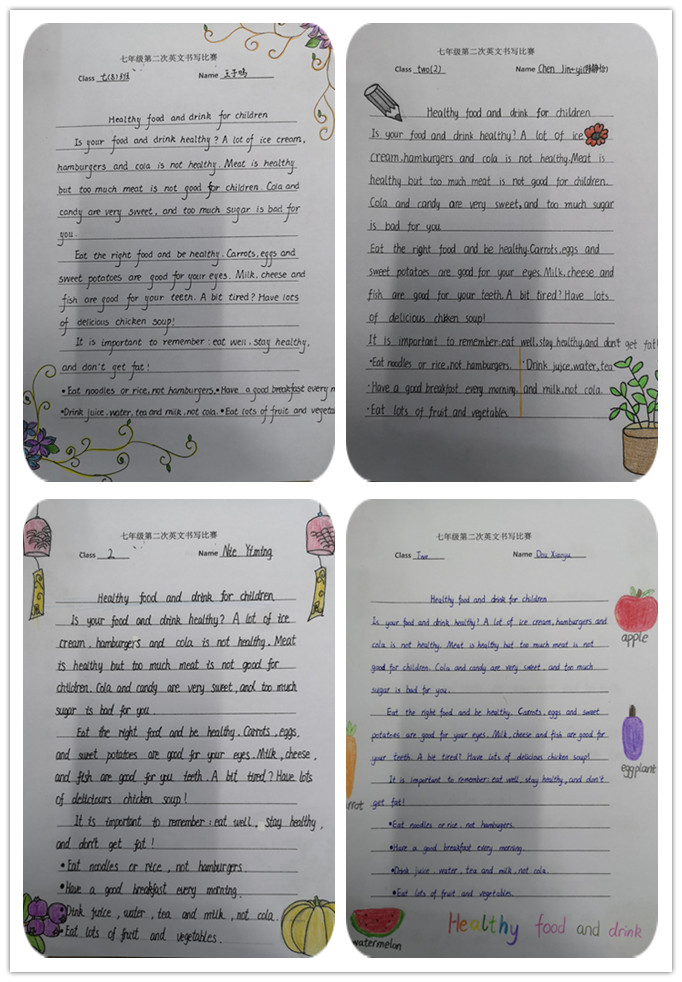 七年级第二次英文书写比赛
Class 七(8)班 Name 王子鸣
Healthy food and drink for children
Is your food and drink healthy? A lot of ice cream,
hamburgers and cola is not healthy. Meat is healthy
but too much meat is not good for children. Cola and
candy are very sweet, and too much sugar is bad for
you.
Eat the right food and be healthy. Carrots, eggs and
sweet potatoes are good for your eyes. Milk, cheese and
fish are good for your teeth. A bit tired? Have lots
of delicious chicken soup!
It is important to remember: eat well, stay healthy,
and don't get fat!
•Eat noodles or rice, not hamburgers. •Have a good breakfast every m
•Drink juice, water, tea and milk, not cola. •Eat lots of fruit and vegeta
七年级第二次英文书写比赛
Class two(2) Name Chen Jin-yi
Healthy food and drink for children
Is your food and drink healthy? A lot of ice
cream, hamburgers and cola is not healthy. Meat is
healthy but too much meat is not good for children.
Cola and candy are very sweet, and too much sugar
is bad for you.
Eat the right food and be healthy. Carrots, eggs and
sweet potatoes are good for your eyes. Milk, cheese and
fish are good for your teeth. A bit tired? Have lots
of delicious chicken soup!
It is important to remember: eat well, stay healthy, and don't get fat!
·Eat noodles or rice, not hamburgers. ·Drink juice, water, tea
·Have a good breakfast every morning. and milk, not cola.
·Eat lots of fruit and vegetables.
七年级第二次英文书写比赛
Class 2 Name Nie Yiming
Healthy food and drink for children
Is your food and drink healthy? A lot of ice
cream, hamburgers and cola is not healthy. Meat
is healthy but too much meat is not good for
children. Cola and candy are very sweet, and too much
sugar is bad for you.
Eat the right food and be healthy. Carrots, eggs,
and sweet potatoes are good for your eyes. Milk, cheese,
and fish are good for you teeth. A bit tired? Have lots
of deliciours chicken soup!
It is important to remember: eat well, stay healthy,
and don't get fat!
•Eat noodles or rice, not hamburgers.
•Have a good breakfast every morning.
•Drink juice, water, tea and milk, not cola.
•Eat lots of fruit and vegetables.
七年级第二次英文书写比赛
Class Two Name Dou Xiaoyu
Healthy food and drink for children
Is your food and drink healthy? A lot of ice cream, hamburgers and
cola is not healthy. Meat is healthy but too much meat is not
good for children. Cola and candy are very sweet, and too much
sugar is bad for you.
Eat the right food and be healthy. Carrots, eggs and sweet
potatoes are good for your eyes. Milk, cheese and fish are good for
your teeth. A bit tired? Have lots of delicious chicken soup!
It is important to remember: eat well, stay healthy, and don't
get fat!
•Eat noodles or rice, not hamburgers.
•Have a good breakfast every morning.
•Drink juice, water, tea and milk, not cola.
•Eat lots of fruit and vegetables.
apple
eggplant
arrot
watermelon
Healthy food and drink